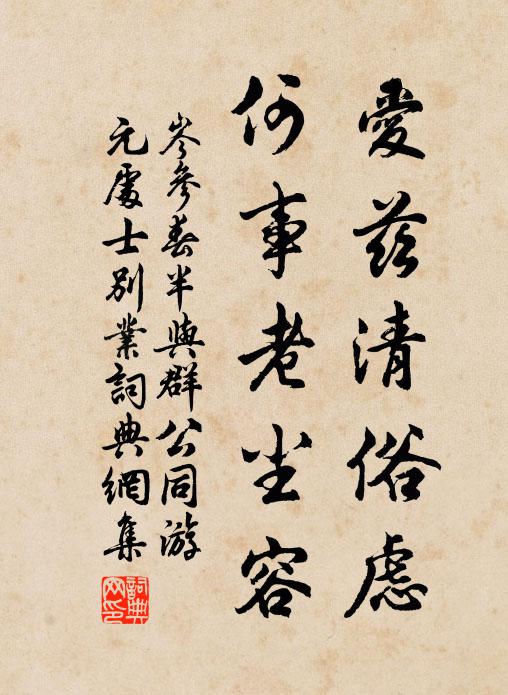 愛茲清俗慮
何事老尘容
岑參春半與群公同游
元處士別業詞典網集
詞典网印